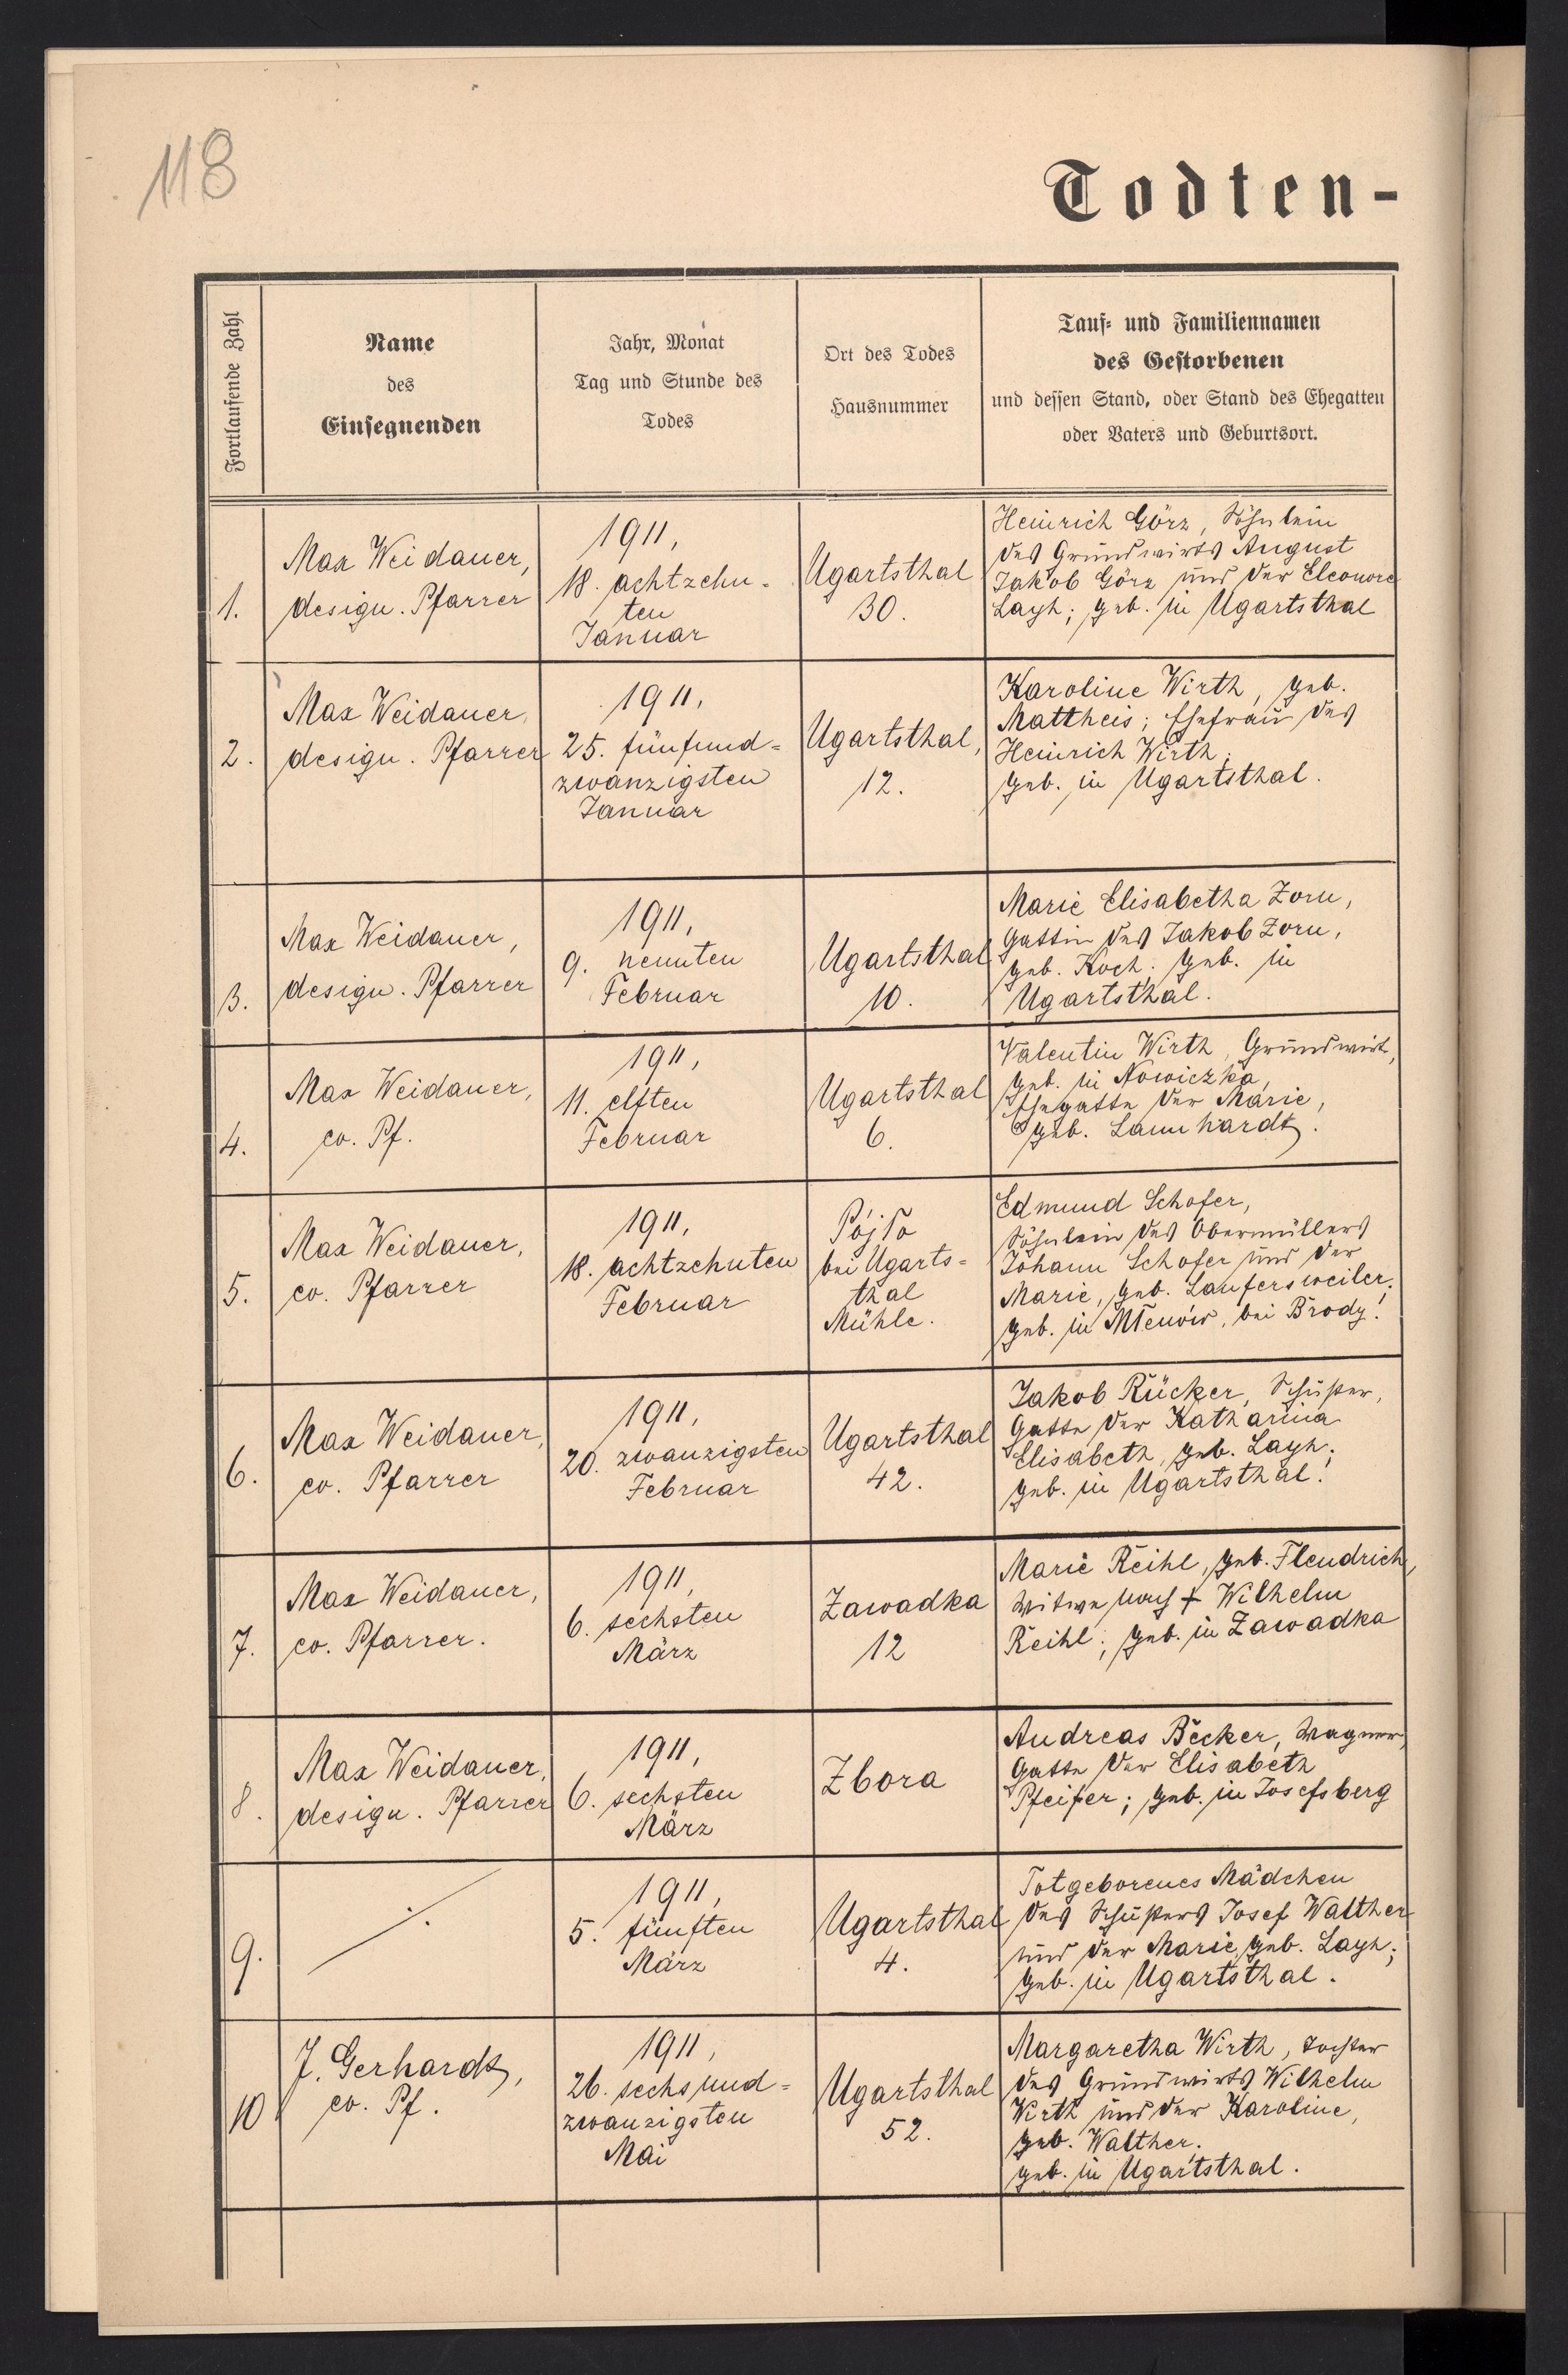 118
Todten-
Fortlaufende Zahl
Name
des
Einsegnenden
Jahr, Monat
Tag und Stunde des
Todes
Ort des Todes
Hausnummer
Tauf- und Familiennamen
des Gestorbenen
und dessen Stand, oder Stand des Ehegatten
oder Vaters und Geburtsort.
1.
Max Weidauer,
design. Pfarrer
1911,
18. achtzehn-
ten
Januar
Ugartsthal
30.
Heinrich Görz, Söhnlein
des Grundwirts August
Jakob Görz und der Eleonore
Layh; geb. in Ugartsthal
2.
Max Weidauer,
design. Pfarrer
1911,
25. fünfund-
zwanzigsten
Januar
Ugartsthal,
12.
Karoline Wirth, geb.
Mattheis; Ehefrau des
Heinrich Wirth;
geb. in Ugartsthal.
3.
Max Weidauer,
design. Pfarrer
1911,
9. neunten
Februar
Ugartsthal
10.
Marie Elisabetha Zorn,
Gattin des Jakob Zorn,
geb. Koch; geb. in
Ugartsthal.
4.
Max Weidauer,
ev. Pf.
1911,
11. elften
Februar
Ugartsthal
6.
Valentin Wirth, Grundwirt,
geb. in Nowiczka,
Ehegatte der Marie,
geb. Lannhardt.
5.
Max Weidauer,
ev. Pfarrer
1911,
18. achtzehnten
Februar
Pójło
bei Ugarts-
thal
Mühle.
Edmund Schofer,
Söhnlein des Obermüllers
Johann Schofer und der
Marie, geb. Laufersweiler;
geb. in Młenów, bei Brody!
6.
Max Weidauer,
ev. Pfarrer
1911,
20. zwanzigsten
Februar
Ugartsthal
42.
Jakob Rücker, Schuster,
Gatte der Katharina
Elisabeth, geb. Layh;
geb. in Ugartsthal!
7.
Max Weidauer,
ev. Pfarrer.
1911,
6. sechsten
März
Zawadka
12
Marie Reihl, geb. Flendrich,
Witwe nach + Wilhelm
Reihl; geb. in Zawadka
8.
Max Weidauer,
design. Pfarrer
1911,
6. sechsten
März
Zbora
Andreas Becker, Wagner,
Gatte der Elisabeth
Pfeifer; geb. in Josefsberg
9.
1911,
5. fünften
März
Ugartsthal
4.
Totgeborenes Mädchen
des Schusters Josef Walther
und der Marie, geb. Layh;
geb. in Ugartsthal.
10
J. Gerhardt,
ev. Pf.
1911,
26. sechsund-
zwanzigsten
Mai
Ugartsthal
52.
Margaretha Wirth, Tochter
des Grundwirts Wilhelm
Wirth und der Karoline,
geb. Walther;
geb. in Ugartsthal.